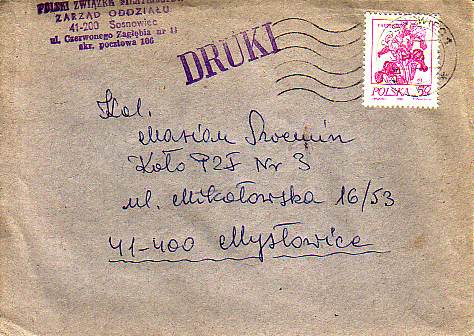 POLSKI ZWIĄZEK FILATELISTÓW
ZARZĄD ODDZIAŁU
41-200 Sosnowiec
ul. Czerwonego Zagłębia nr 11
skr. pocztowa 106
DRUKI
POLSKA 5zł
Kol.
Marian
Koło PZF Nr 3
ul. Mikołowska 16/53
41-400 Mysłowice